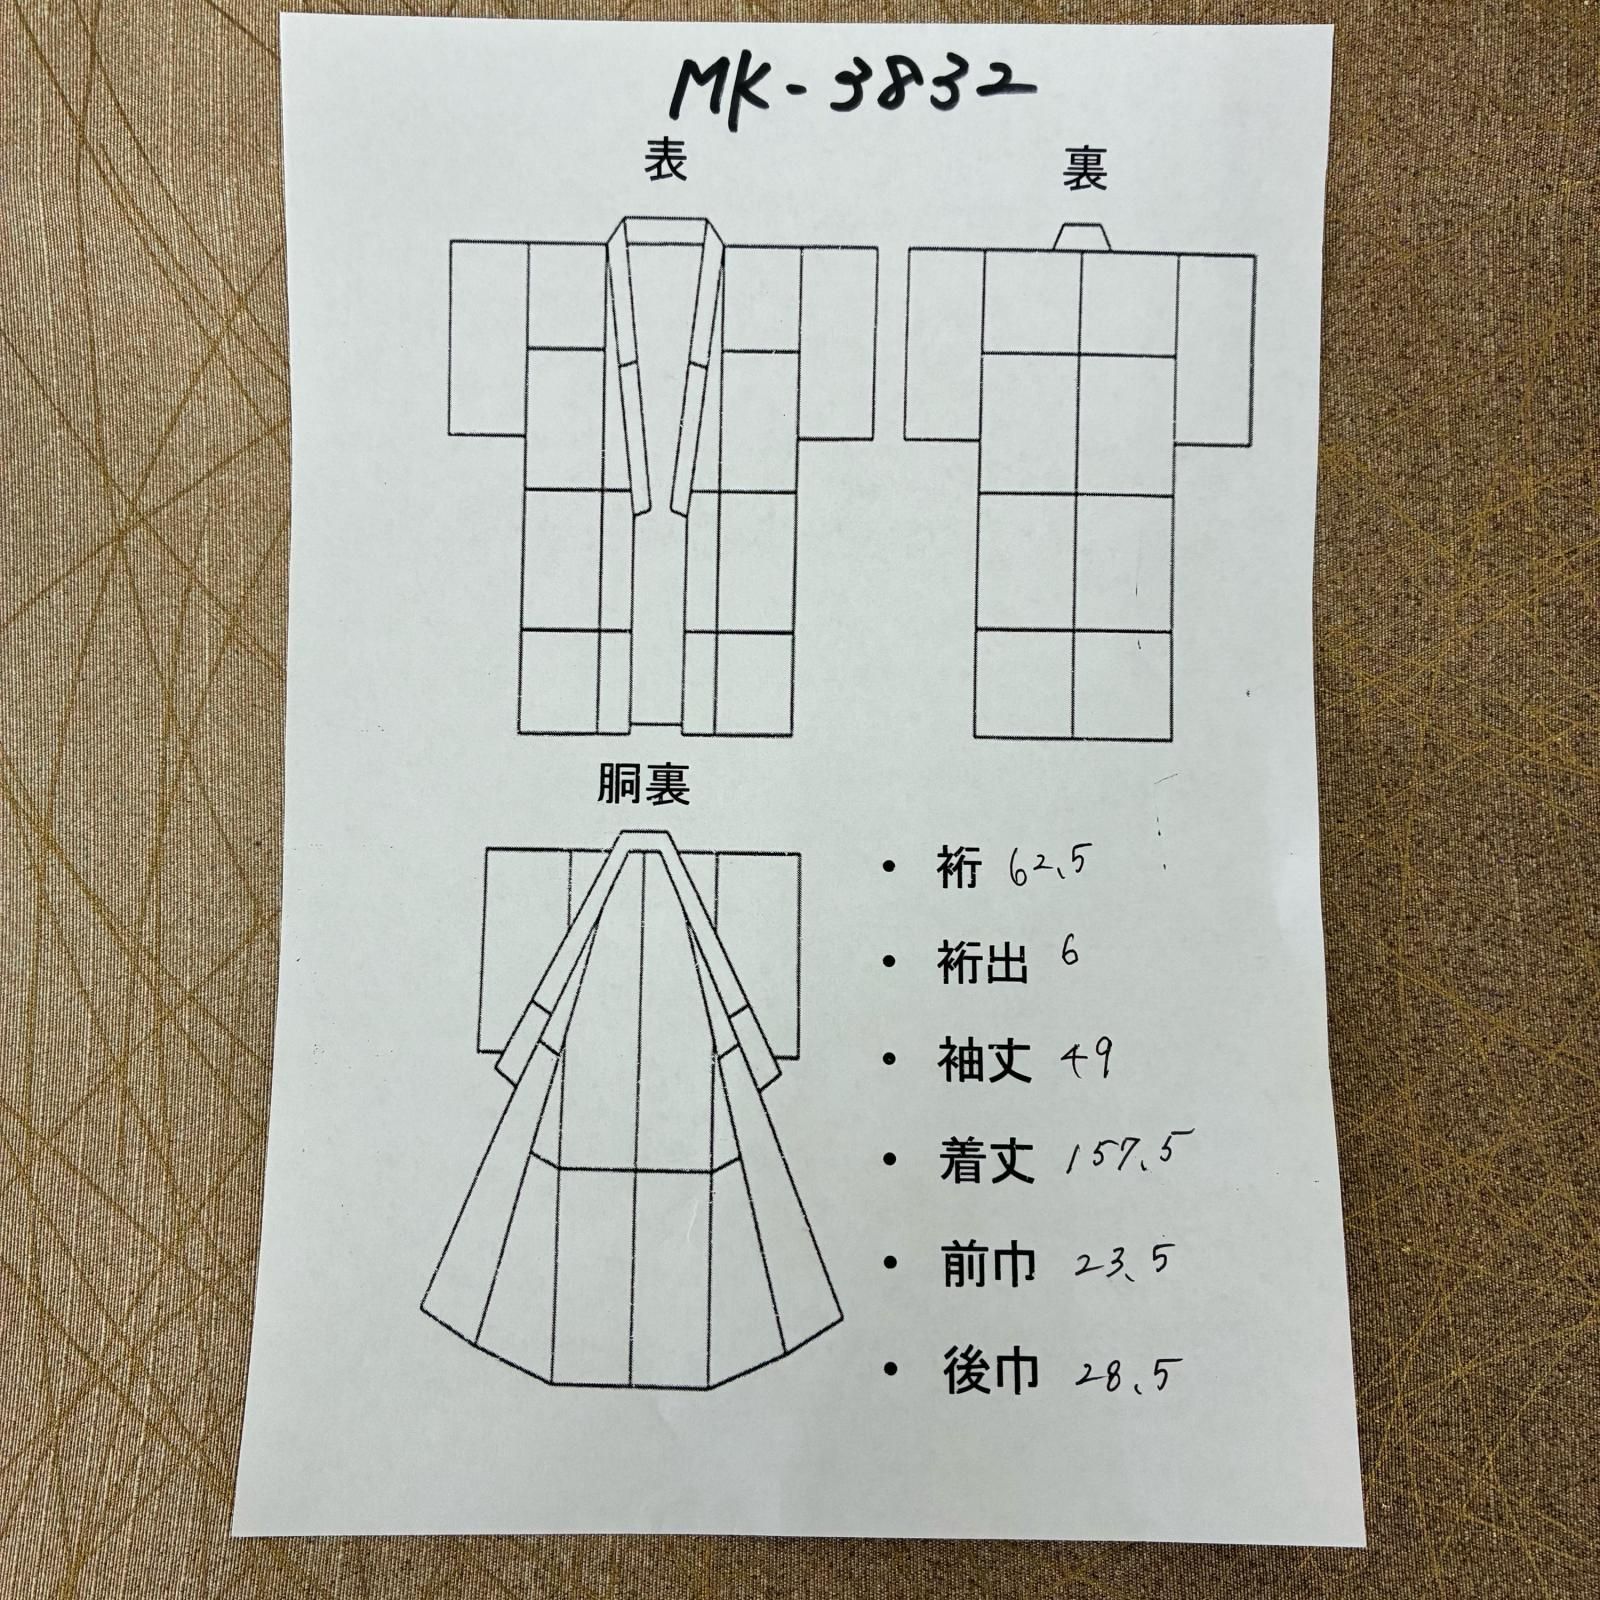 MK-3832
表
裏
胴裏
・ 裄 62.5
・ 裄出 6
・ 袖丈 49
・ 着丈 157.5
・ 前巾 23.5
・ 後巾 28.5